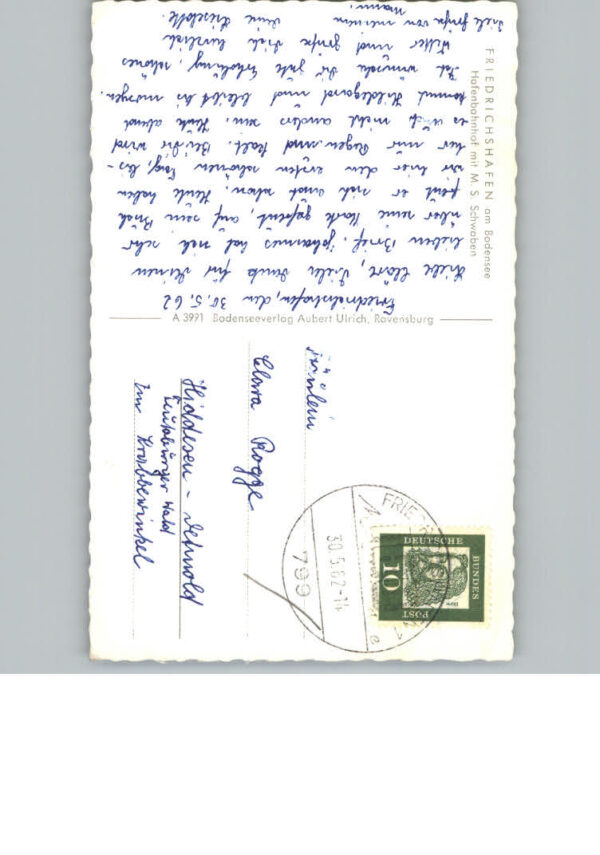 FRIEDRICHSHAFEN am Bodensee
Hafenbahnhof mit M. S. Schwaben
Friedrichshafen, den 30.5.62
Liebe Clara, vielen Dank für Deinen
lieben Brief. Johannes hat sich sehr
über seine Karte gefreut, auf sein Buch
freut er sich auch schon. Heute haben
wir hier den ersten schönen Tag, bis-
her nur Regen und kalt. Bei Dir wird
es nicht anders sein. Heute abend
kommt Hildegard und bleibt bis morgen.
Ich wünsche Dir gute Erholung, schönes
Wetter und grüße Dich herzlich
Deine Liselotte.
Viele Grüße von meinem
Mann!
A 3991 Bodenseeverlag Aubert Ulrich, Ravensburg
Fräulein
Clara Rogge
Hiddesen - Detmold
Teutoburger Wald
Im Krabbewinkel
FRIEDR
30.5.62-14
799
1
e
DEUTSCHE
BUNDES
POST
10